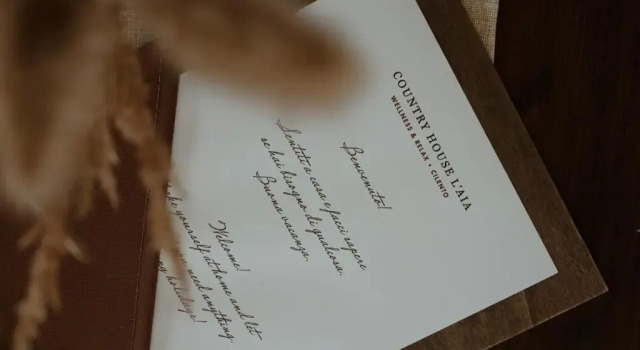 COUNTRY HOUSE L'AIA
WELLNESS & RELAX • CILENTO
Benvenuto!
Sentiti a casa e facci sapere
se hai bisogno di qualcosa.
Buona vacanza.
Welcome!
yourself at home and let
need anything.
holidays!